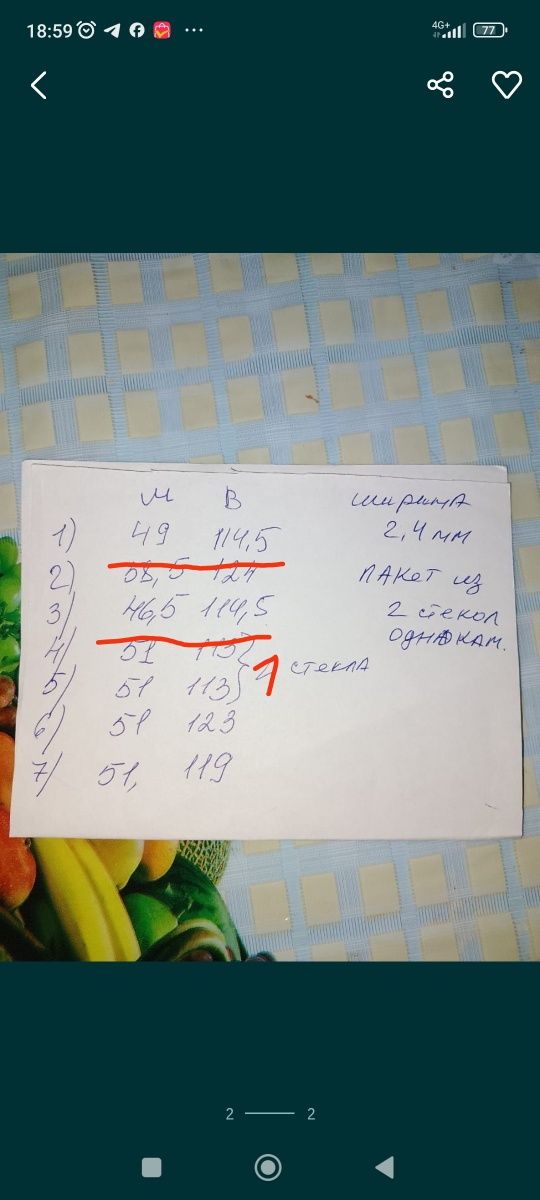 18:59 4G+ 77
Ш В ширина
1) 49 114,5 2,4 мм
2) 58,5 124 ПАКет из
3) 46,5 114,5 2 стекол
4) 51 113 однокам.
1 стекла
5) 51 113
6) 51 123
7) 51, 119
2 2